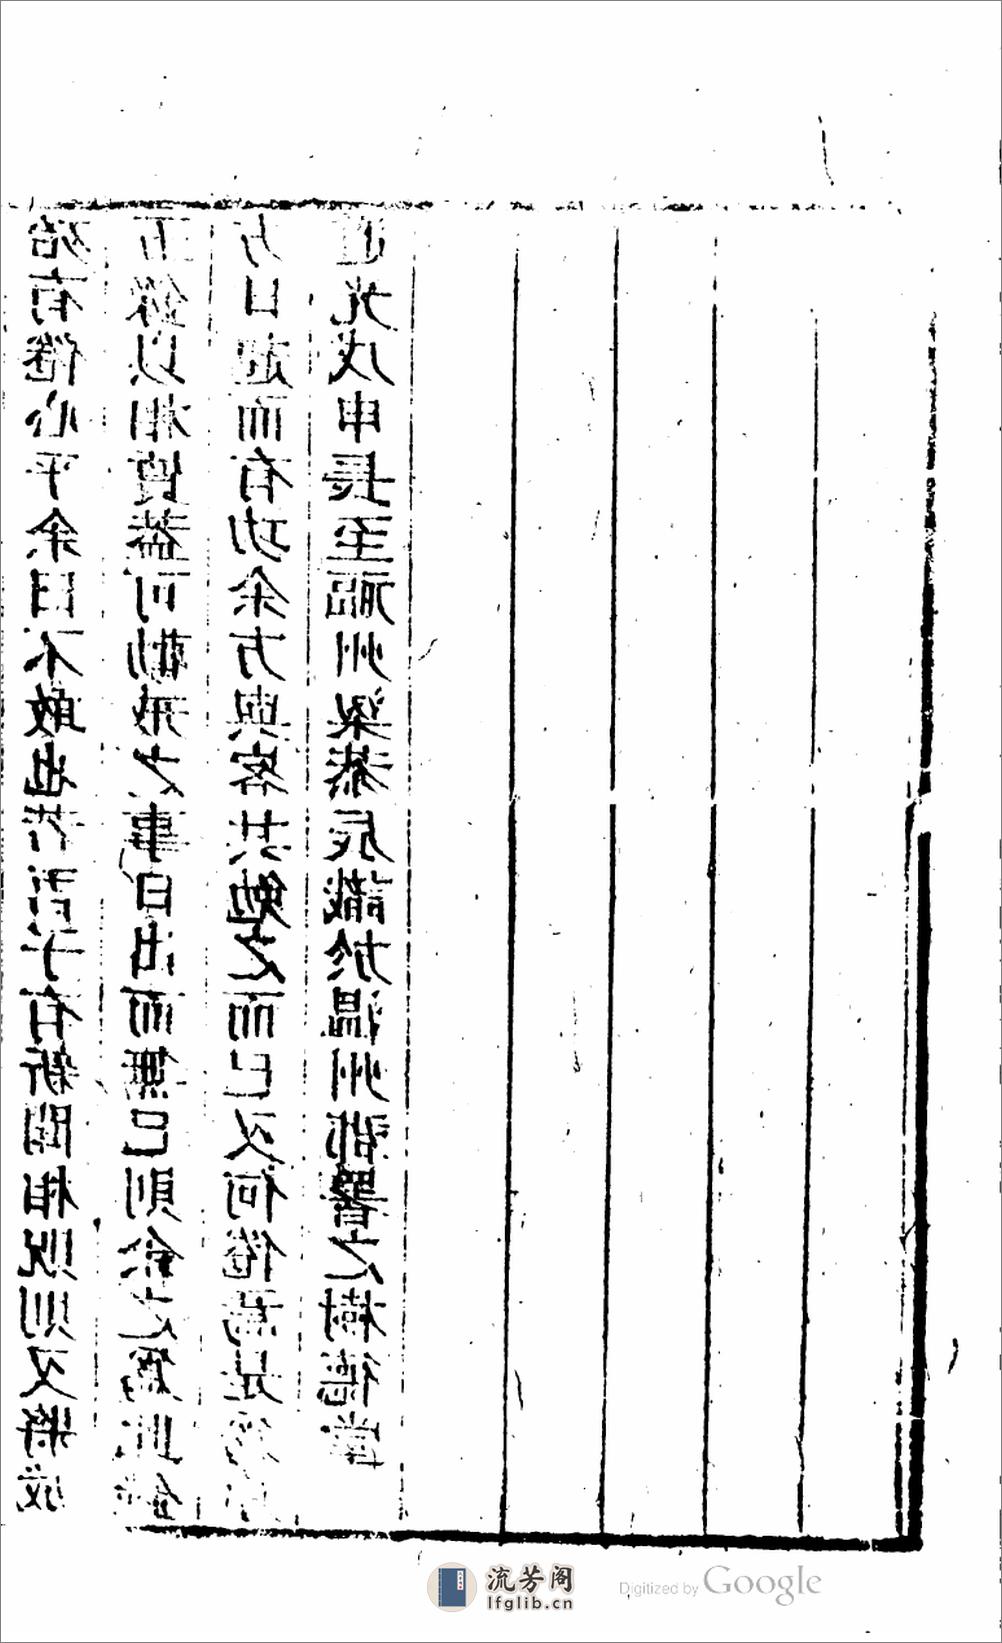 殆有倦心乎余曰不敢也若吾子有新聞相貺則又將成
五錄以相質蓋可勸戒之事日出而無已則余之為此
方日起而有功余方與客共勉之而已又何倦焉是
道光戊申長至福州梁恭辰識於溫州郡署之樹德堂
流芳阁
lfglib.cn
Digitized by Google